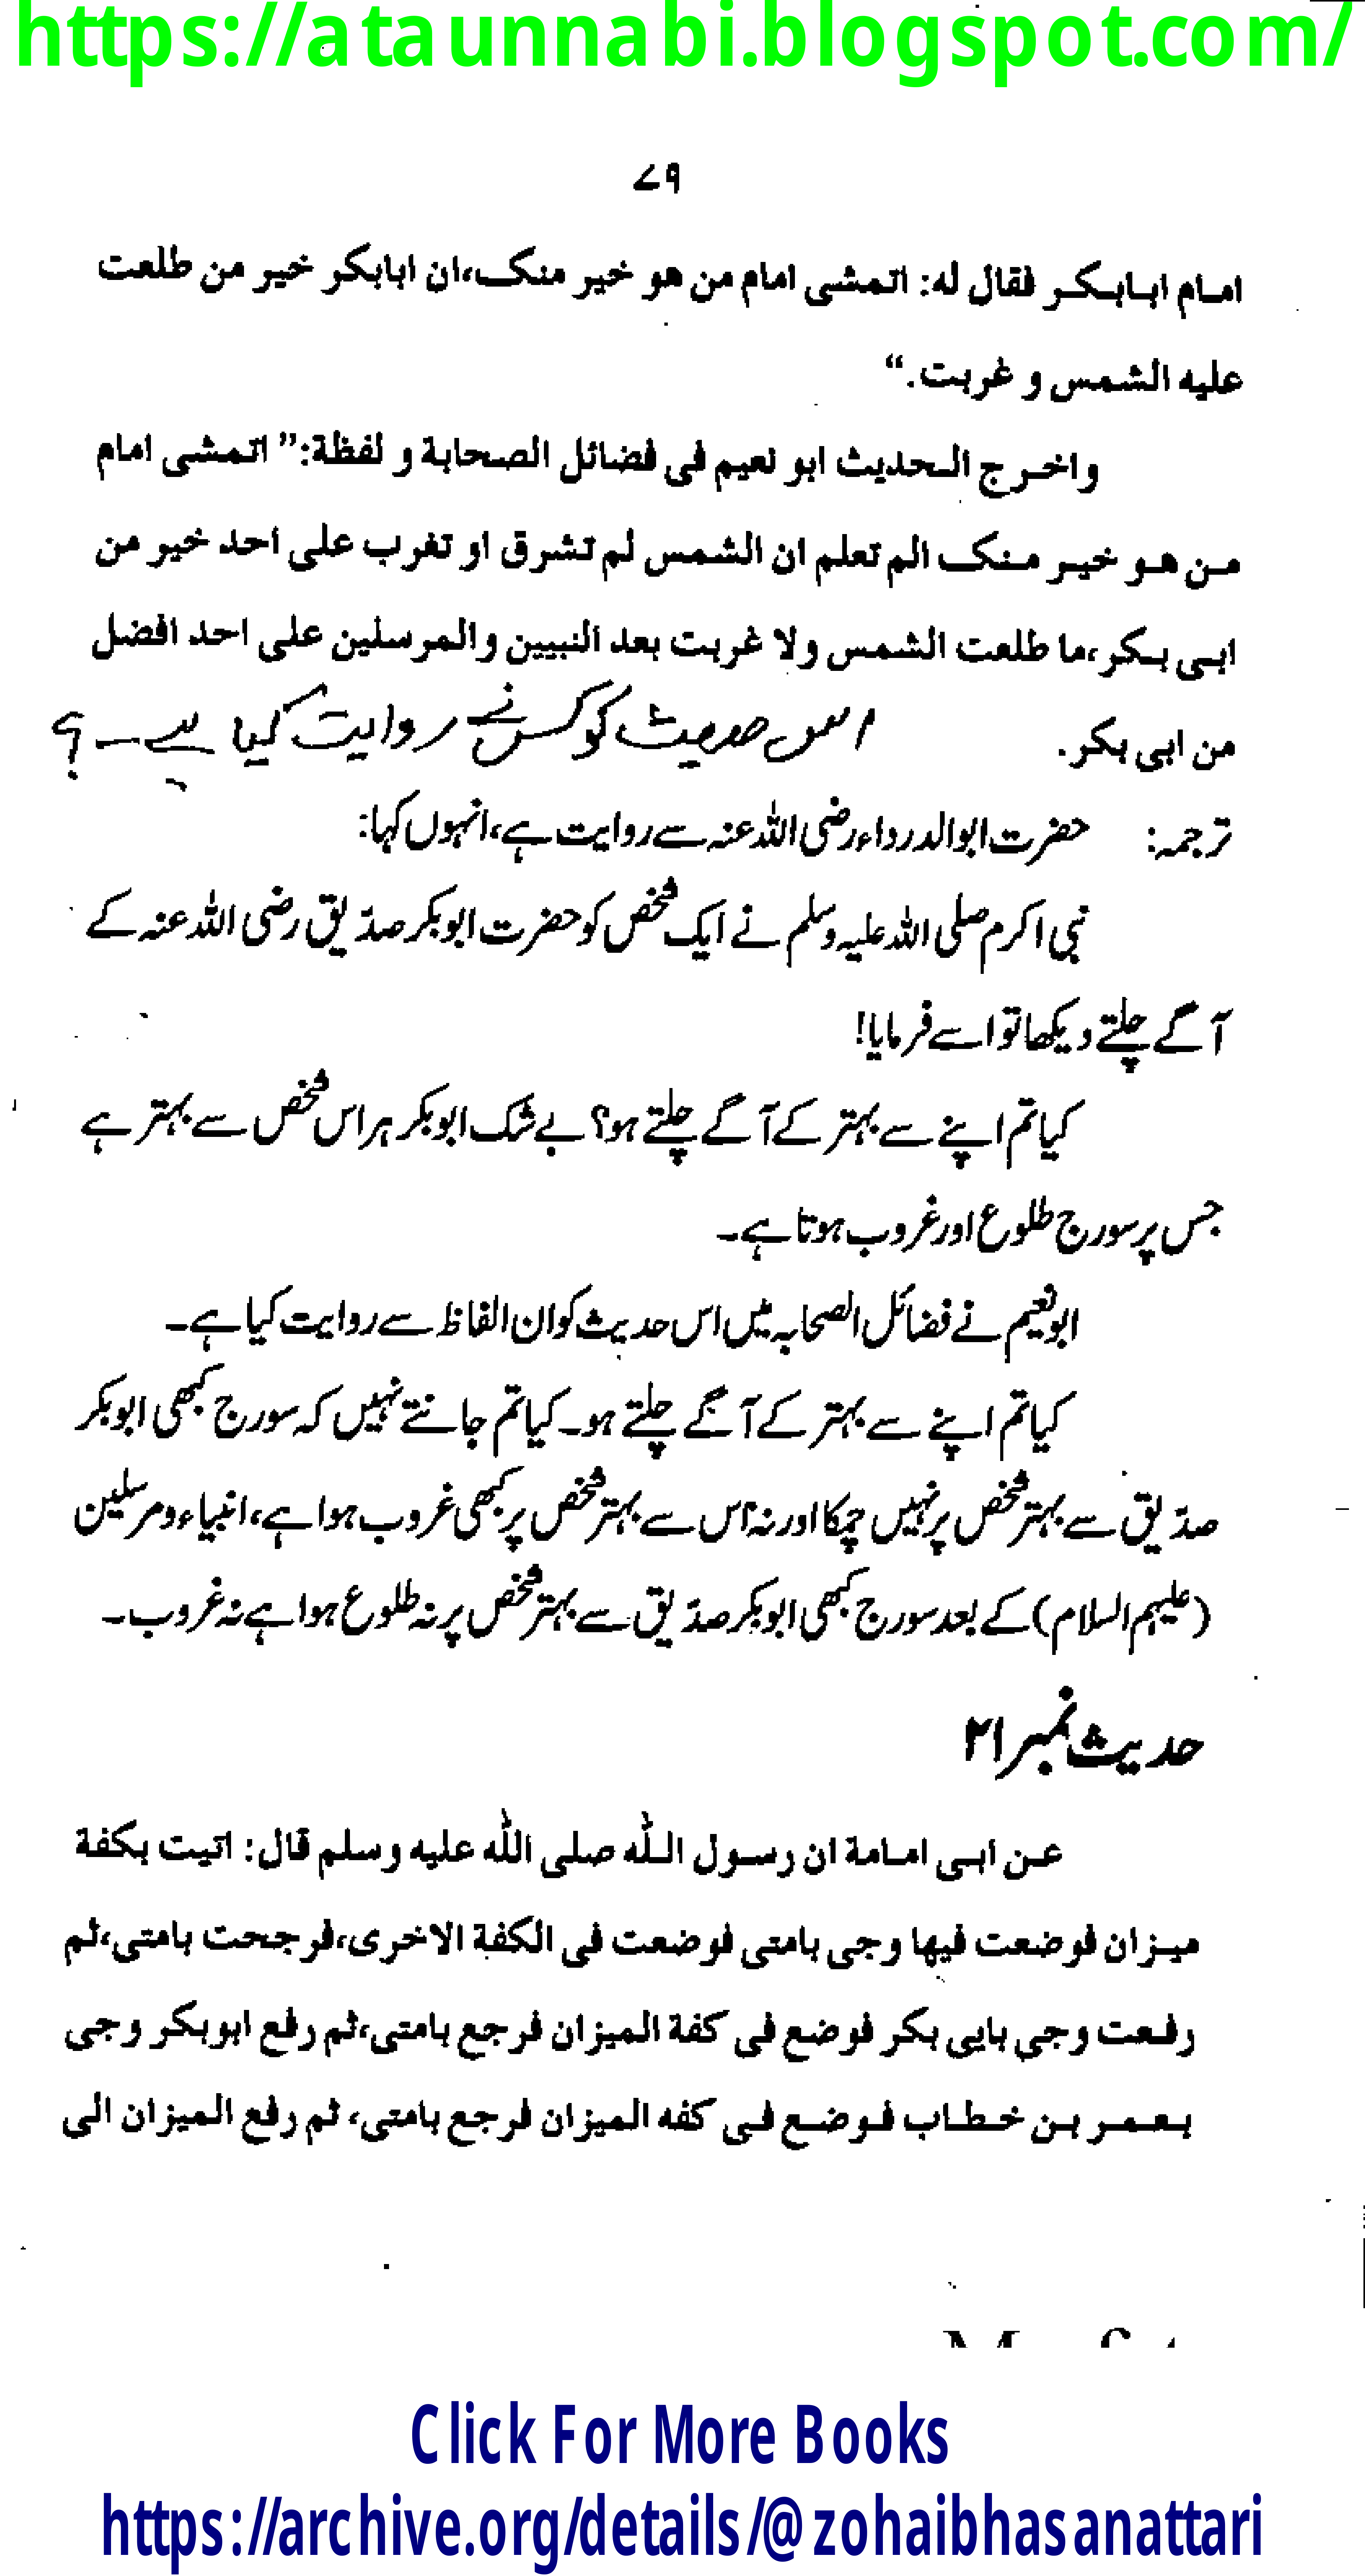 https://ataunnabi.blogspot.com/
۷۹
امام ابابکر فقال له: اتمشی امام من هو خیر منک،ان ابابکر خیر من طلعت
علیه الشمس و غربت.“
واخرج الحدیث ابو نعیم فی فضائل الصحابة و لفظة:” اتمشی امام
من هو خیر منک الم تعلم ان الشمس لم تشرق او تغرب علی احد خیر من
ابی بکر،ما طلعت الشمس ولا غربت بعد النبیین والمرسلین علی احد افضل
من ابی بکر.
اس حدیث کو کس نے روایت کیا ہے ۔؟
ترجمہ: حضرت ابوالدرداء رضی اللہ عنہ سے روایت ہے،انہوں کہا:
نبی اکرم صلی اللہ علیہ وسلم نے ایک شخص کو حضرت ابوبکر صدّیق رضی اللہ عنہ کے
آگے چلتے دیکھا تو اسے فرمایا!
کیا تم اپنے سے بہتر کے آگے چلتے ہو؟ بے شک ابوبکر ہر اس شخص سے بہتر ہے
جس پر سورج طلوع اور غروب ہوتا ہے۔
ابو نعیم نے فضائل الصحابہ میں اس حدیث کو ان الفاظ سے روایت کیا ہے۔
کیا تم اپنے سے بہتر کے آگے چلتے ہو۔ کیا تم جانتے نہیں کہ سورج کبھی ابوبکر
صدّیق سے بہتر شخص پر نہیں چمکا اور نہ اس سے بہتر شخص پر کبھی غروب ہوا ہے،انبیاء و مرسلین
(علیہم السلام) کے بعد سورج کبھی ابوبکر صدّیق سے بہتر شخص پر نہ طلوع ہوا ہے نہ غروب۔
حدیث نمبر ۲۱
عن ابی امامة ان رسول اللّٰه صلی اللّٰه علیه وسلم قال: اتیت بکفة
میزان فوضعت فیها وجی بامتی فوضعت فی الکفة الاخری،فرجحت بامتی،ثم
رفعت وجی بابی بکر فوضع فی کفة المیزان فرجع بامتی،ثم رفع ابوبکر وجی
بعمر بن خطاب فوضع فی کفه المیزان فرجع بامتی، ثم رفع المیزان الی
Click For More Books
https://archive.org/details/@zohaibhasanattari